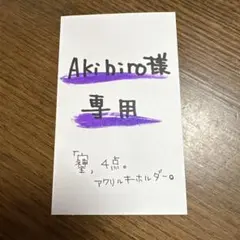 Akihiro様
専用
「蟹」4点。
アクリルキーホルダー。